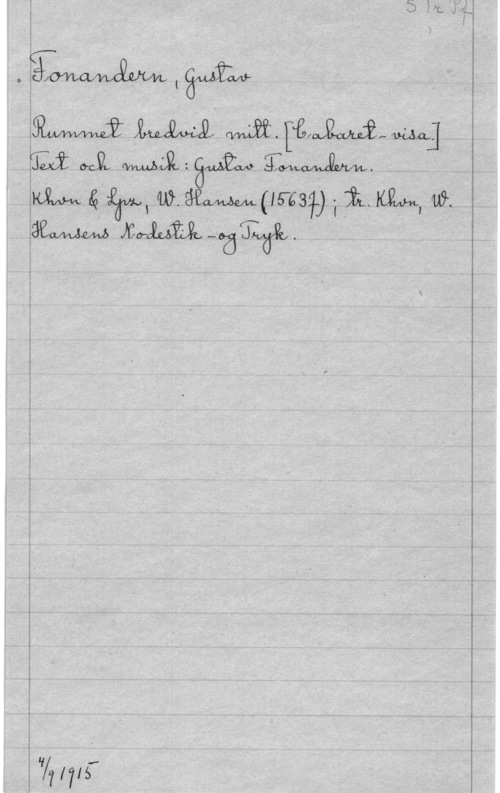 S Tr Pf
Fonandern, Gustav
Rummet bredvid mitt. [Cabaret-visa.]
Text och musik: Gustav Fonandern.
Khvn & Lpz, W. Hansen (15637); tr. Khvn, W.
Hansens Nodestik-og Tryk.
4/9 1915